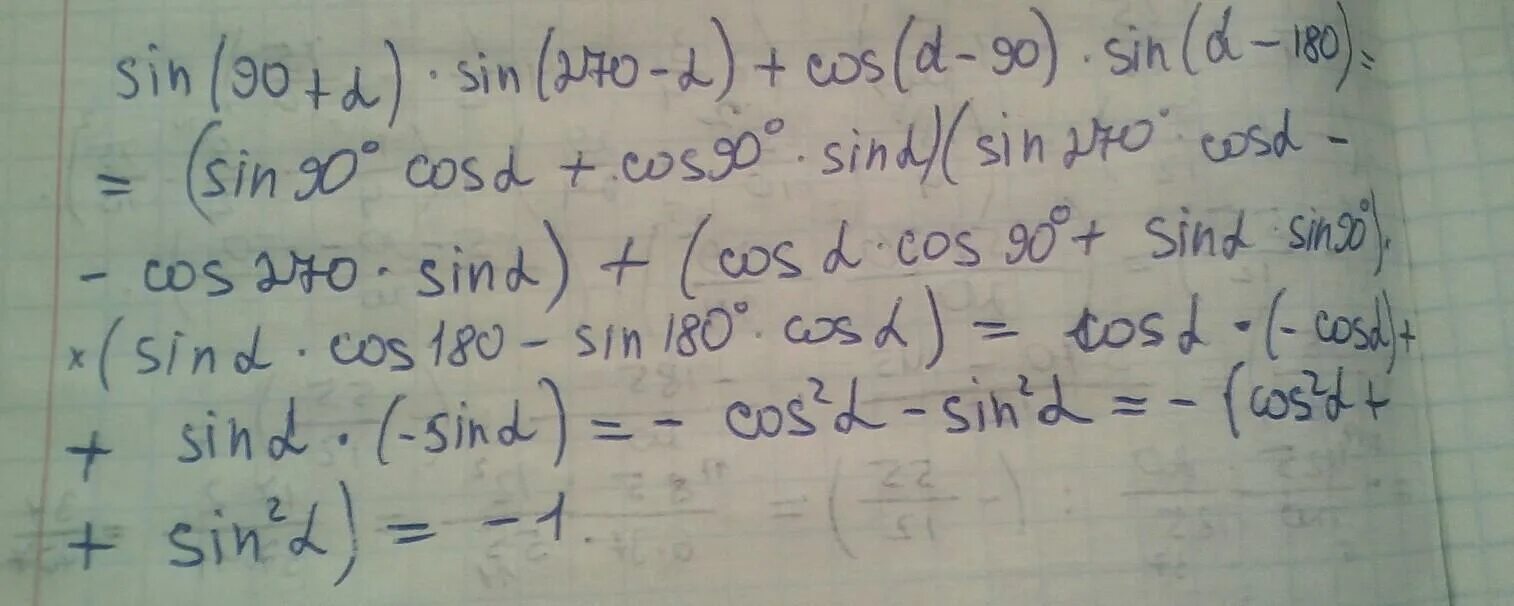 sin(90+α)·sin(270-α)+cos(α-90)·sin(α-180)=
= (sin90° cosα + cos90°·sinα)(sin270° cosα -
- cos270·sinα) + (cosα·cos90° + sinα·sin90°)·
×(sinα·cos180 - sin180°·cosα) = cosα·(-cosα)+
+ sinα·(-sinα) = - cos²α - sin²α = - (cos²α +
+ sin²α) = -1.